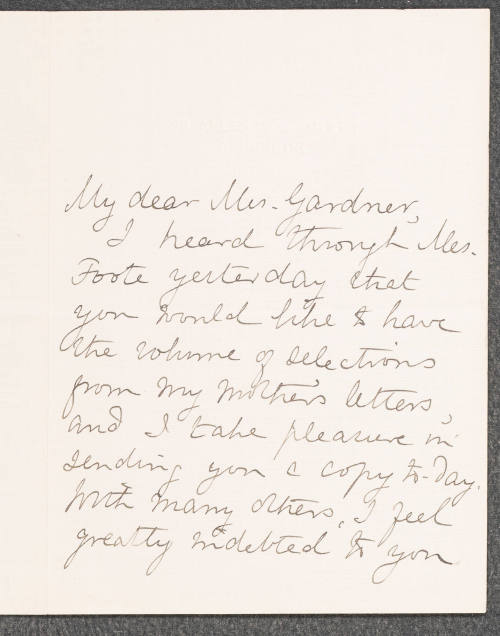 My dear Mrs. Gardner,
I heard through Mrs.
Foote yesterday that
you would like to have
the volume of selections
from my mother's letters,
and I take pleasure in
sending you a copy to-day.
With many others, I feel
greatly indebted to you